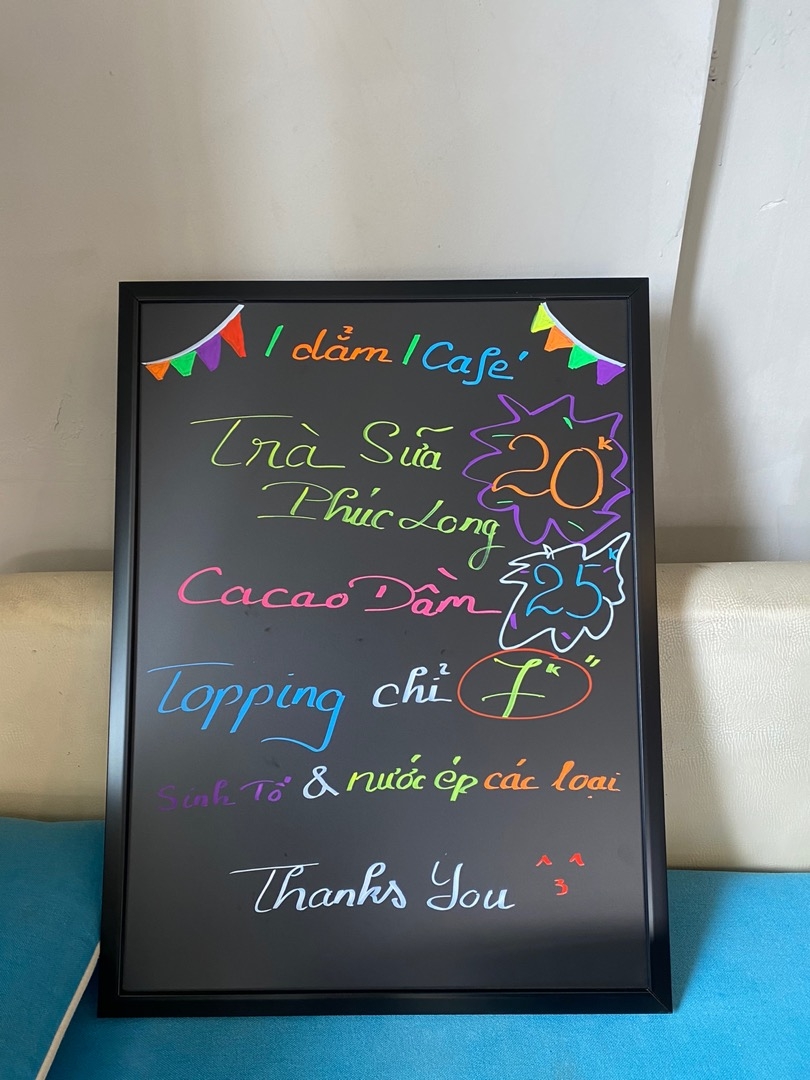 1 dẳm 1 Café
Trà Sữa 20K
Phúc Long
Cacao Dầm 25K
Topping chỉ 7K"
Sinh Tố & nước ép các loại
Thanks You ^ 3 ^